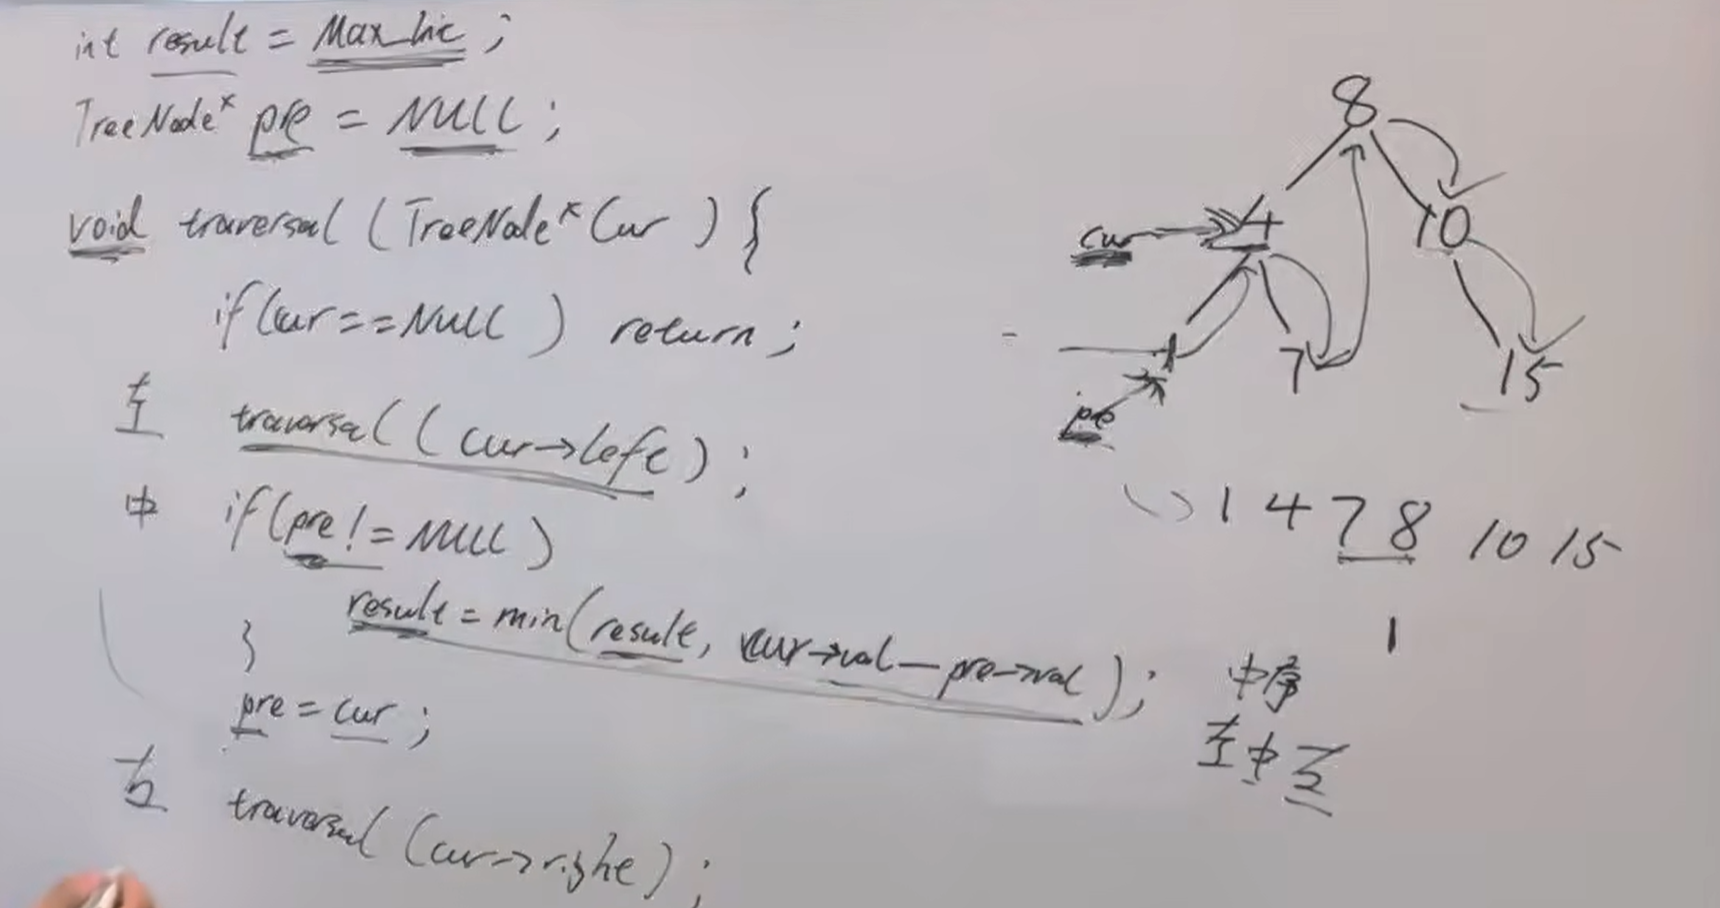 int result = Max_Int ;
TreeNode* pre = NULL ;
void traversal ( TreeNode* cur ) {
if (cur == NULL ) return ;
左 traversal ( cur->left ) ;
中 if (pre != NULL )
result = min(result, cur->val - pre->val ) ;
}
pre = cur ;
右 traversal (cur->right) ;
8
cur 4 10
1 7 15
pre
1 4 7 8 10 15
1
中序
左中右